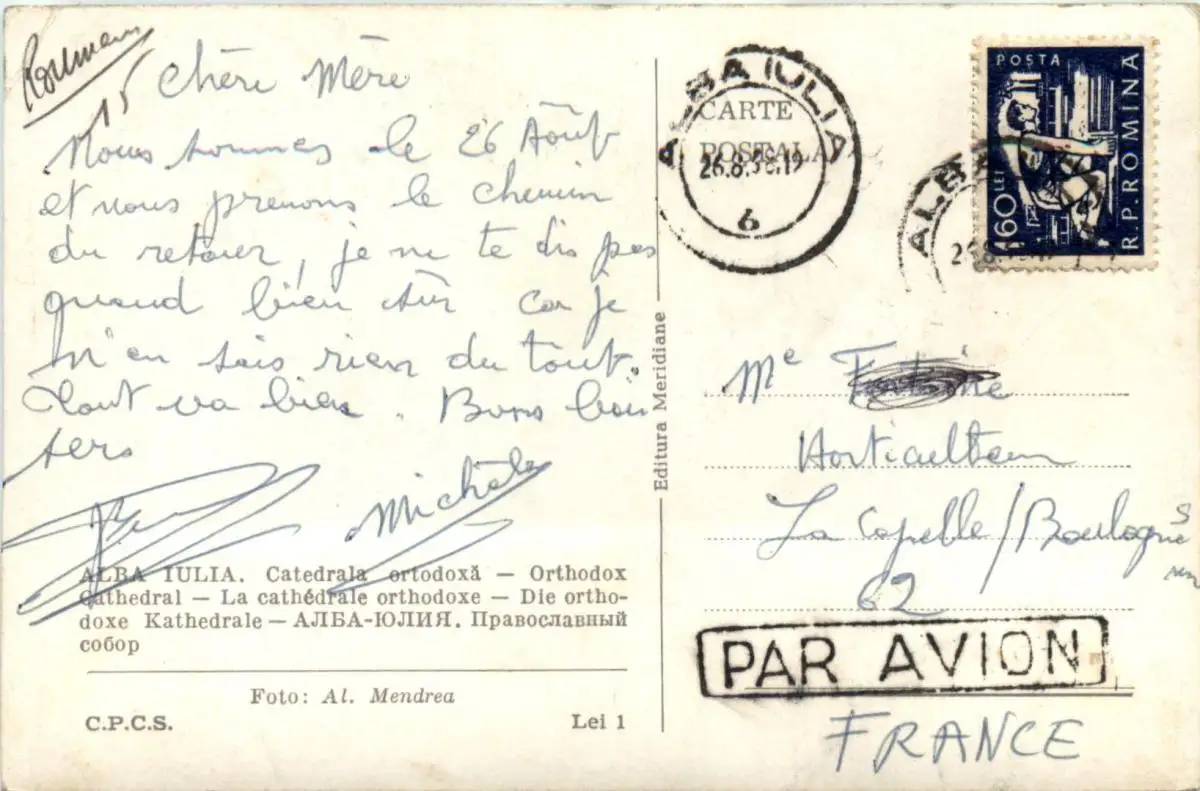 15
Chère Mère
Nous sommes le 26 Août
et nous prenons le chemin
du retour, je ne te dis pas
quand bien sûr car je
n'en sais rien du tout.
Tout va bien. Bons bai
sers
Michèle
ALBA IULIA. Catedrala ortodoxă — Orthodox
Cathedral — La cathédrale orthodoxe — Die ortho-
doxe Kathedrale — АЛБА-ЮЛИЯ. Православный
собор
Foto: Al. Mendrea
C.P.C.S. Lei 1
Editura Meridiane
CARTE
POSTALA
ALBA IULIA
6
POSTA
1,60 LEI
R.P. ROMINA
ALBA
Me
Horticulteur
La Capelle/Boulogne
62
PAR AVION
FRANCE